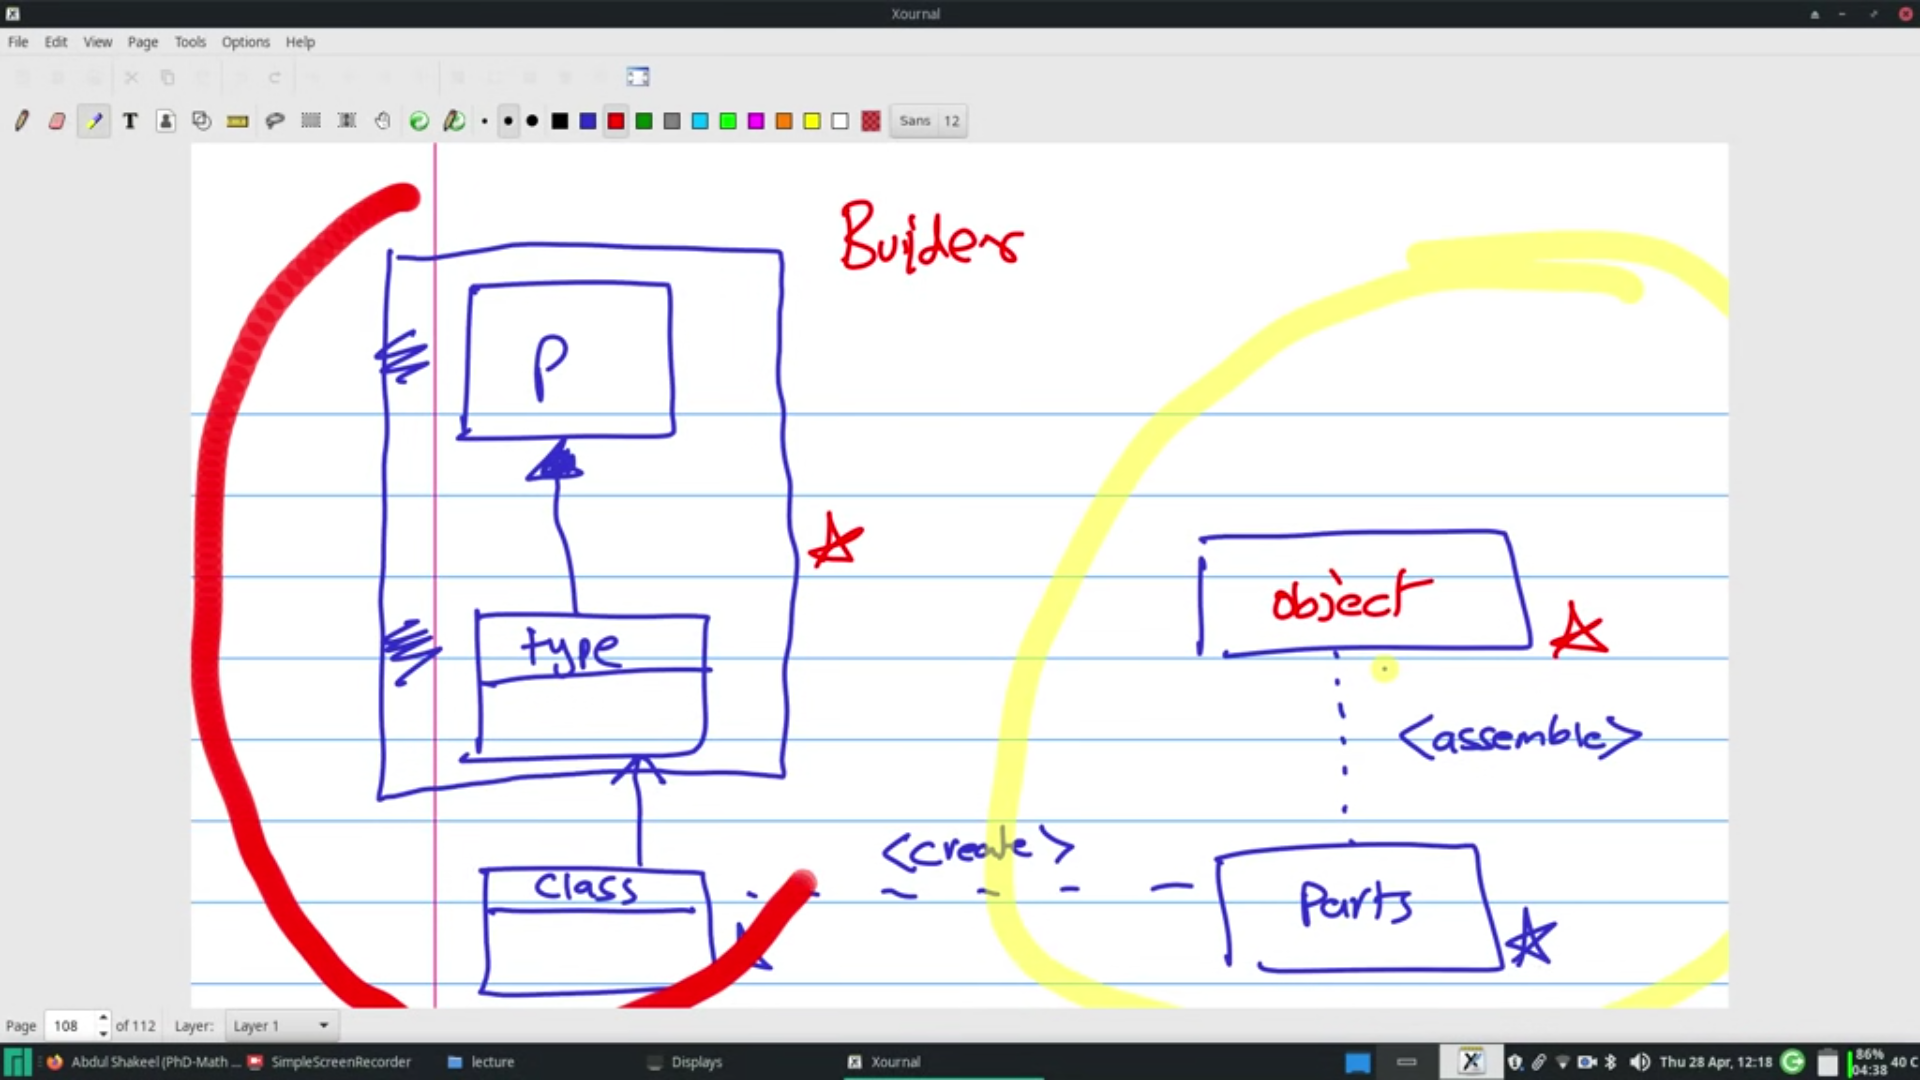 Xournal
File Edit View Page Tools Options Help
T Sans 12
Builders
P
type
object
<assemble>
<create>
class
Parts
Page 108 of 112 Layer: Layer 1
Abdul Shakeel (PhD-Math ... SimpleScreenRecorder lecture Displays Xournal Thu 28 Apr, 12:18 86% 04:38 40 C